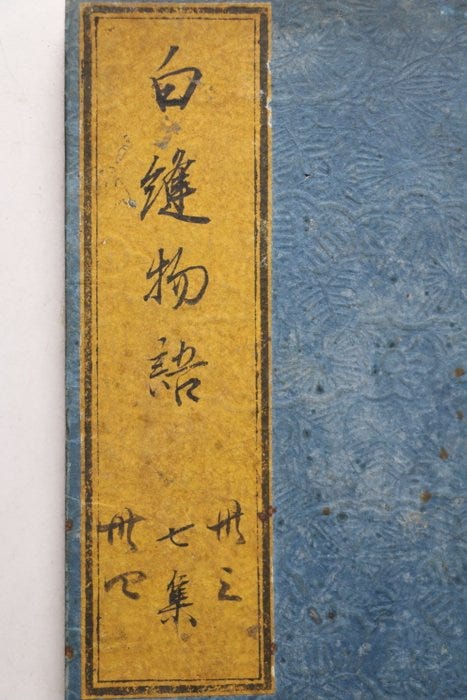 白縫物語
卅三
七集
卅四